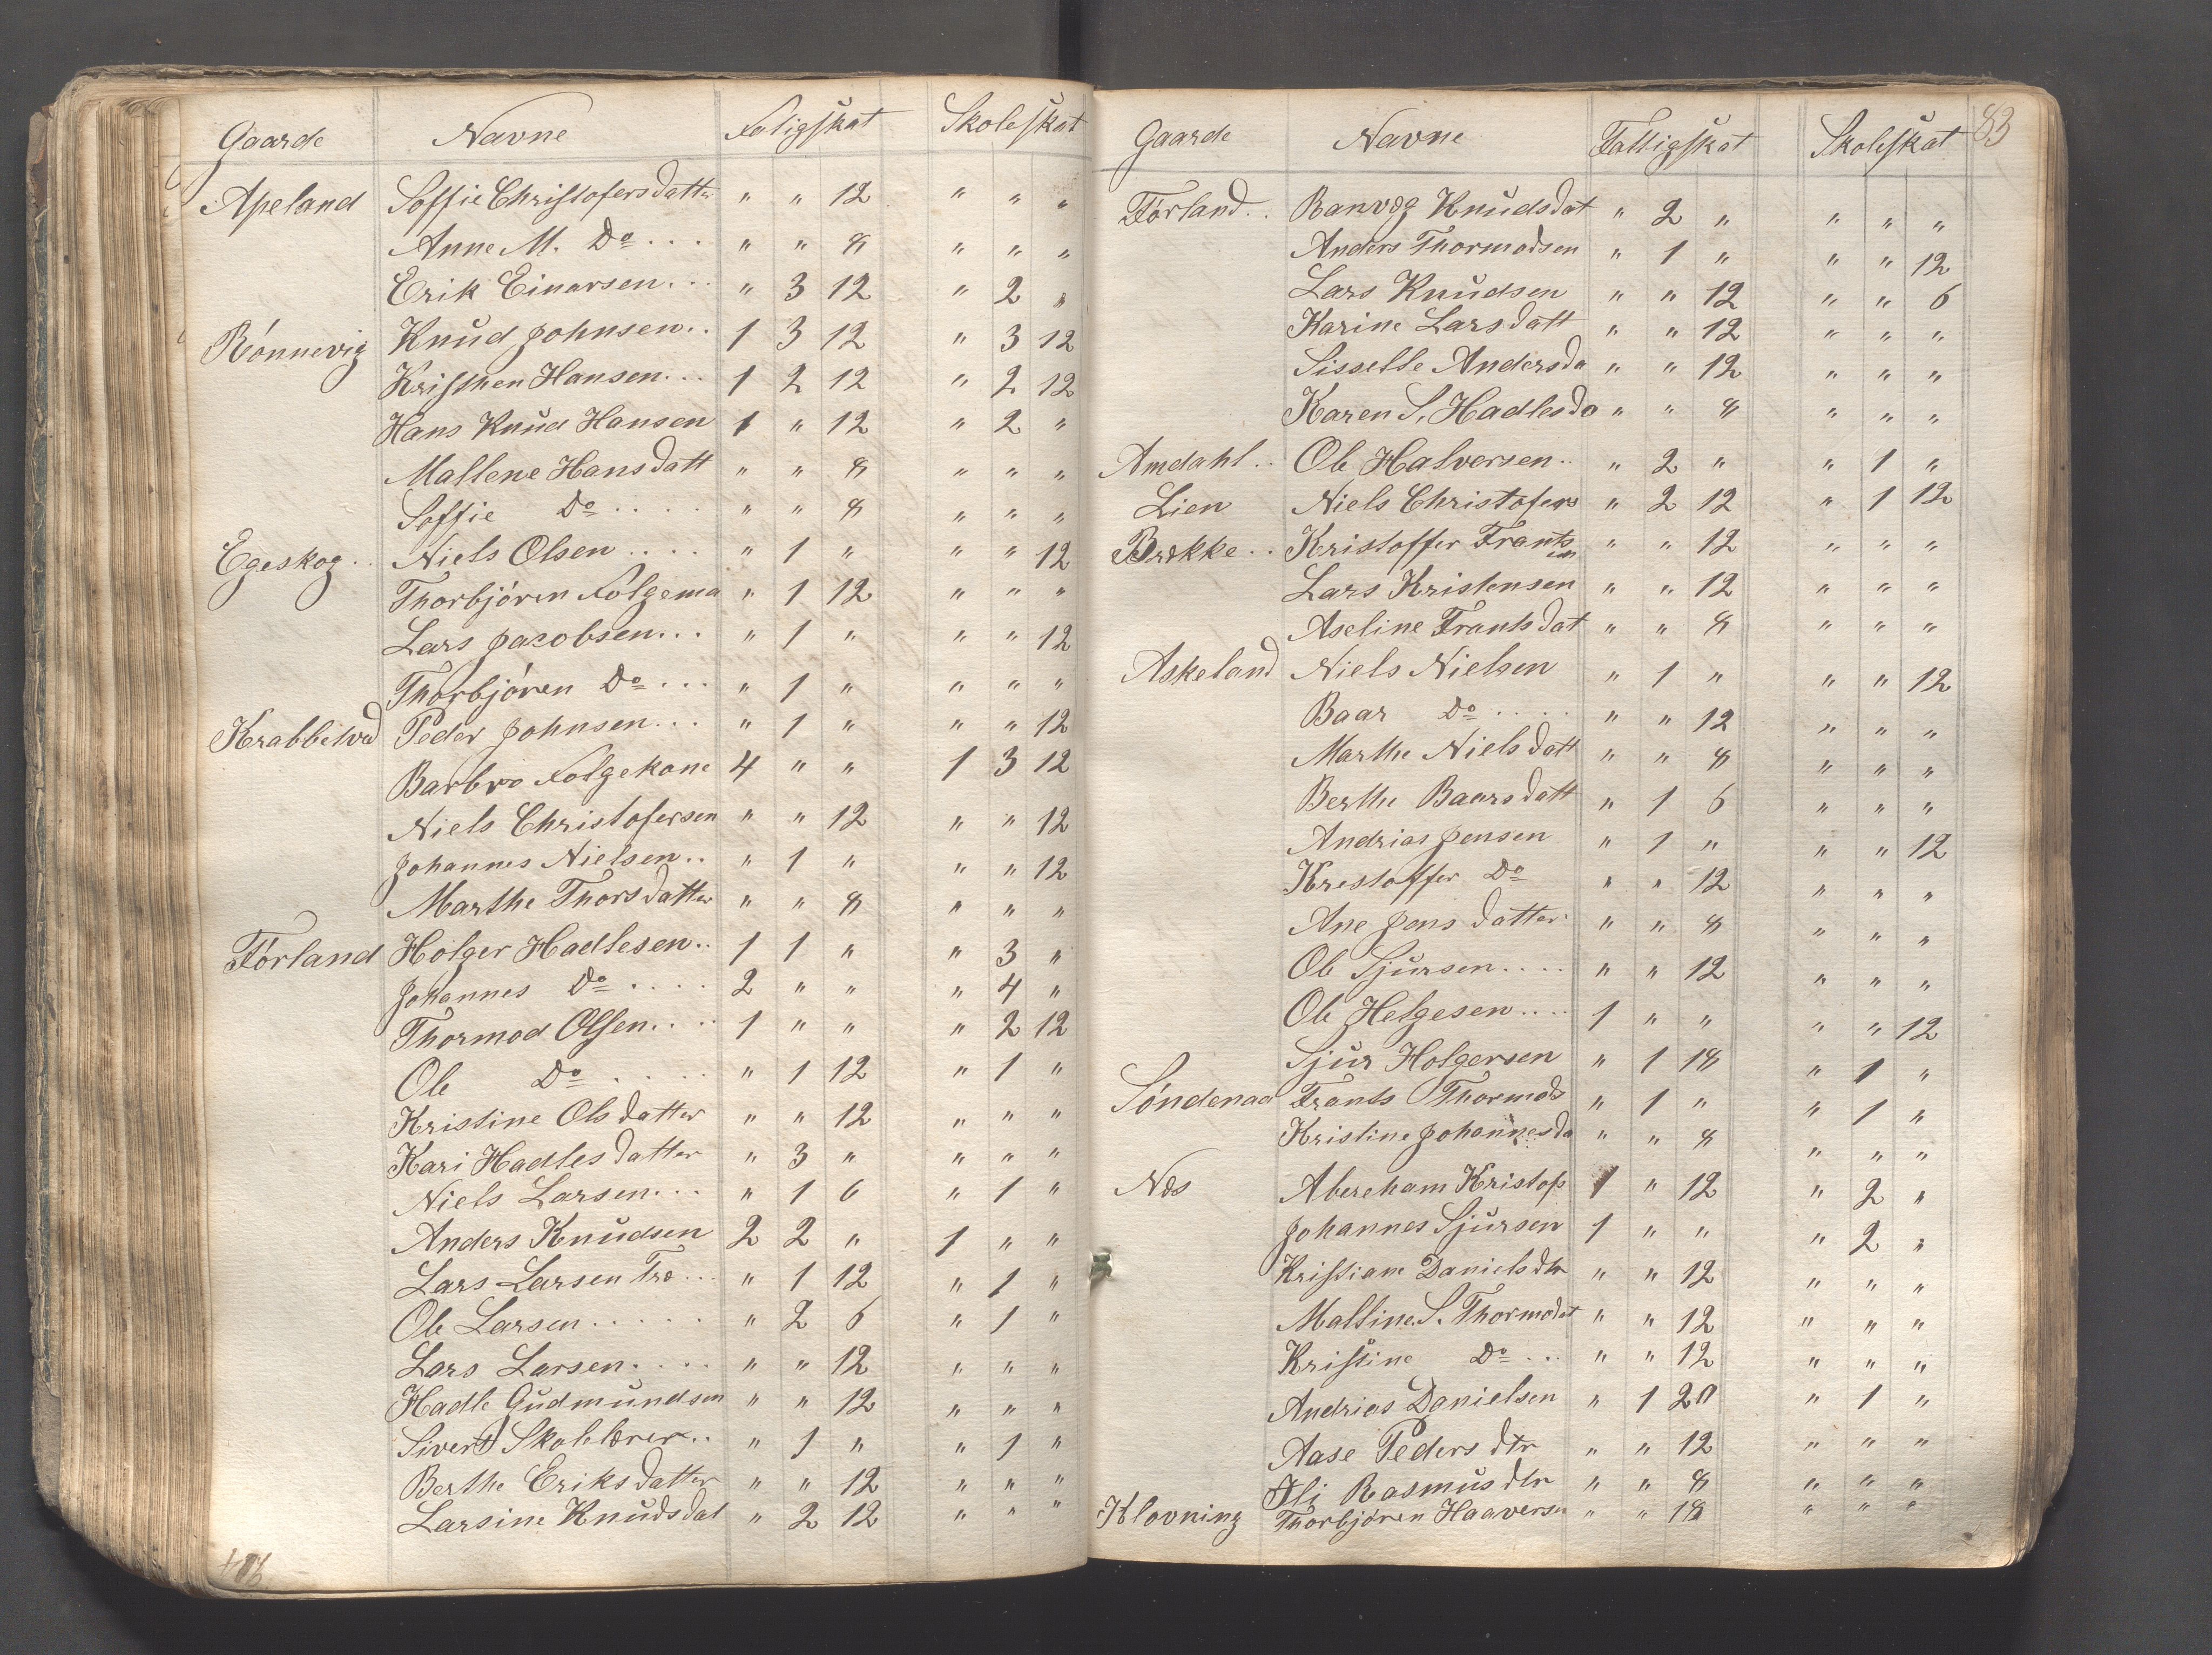 Gaarde Navne Fatigskat Skoleskat
Apeland Soffie Christofersdatter " " 12 " " "
Anne M. Do ... " " 8 " " "
Erik Einarsen ... " 3 12 " 2 "
Rønnevig Knud Johnsen .. 1 3 12 " 3 12
Kristhen Hansen ... 1 2 12 " 2 12
Hans Knud Hansen 1 " 12 " 2 "
Mallene Hansdatt " " 8 " " "
Soffie Do .... " " 8 " " "
Egeskog .. Niels Olsen .... " 1 " " " 12
Thorbjøren Folgema " 1 12 " " "
Lars Jacobsen ... " 1 " " " 12
Thorbjøren Do ... " 1 " " " "
Krabbetvd Peder Johnsen ... " 1 " " " 12
Barbro Folgekone 4 " " 1 3 12
Niels Christofersen " " 12 " " 12
Johannes Nielsen .. " 1 " " " 12
Marthe Thorsdatter " " 8 " " "
Førland Holger Hadlesen .. 1 1 " " 3 "
Johannes Do .... 2 " " " 4 "
Thormod Olsen .... 1 " " " 2 12
Ole Do ..... " 1 12 " 1 "
Kristine Olsdatter " " 12 " " "
Kari Hadlesdatter " 3 " " " "
Niels Larsen ... " 1 6 " 1 "
Anders Knudsen 2 2 " 1 " "
Lars Larsen Træ ... " 1 12 " 1 "
Ole Larsen ..... " 2 6 " 1 "
Lars Larsen .... " " 12 " " "
Hadle Gudmundsen " " 12 " " "
Sivert Skolelærer .. " 1 " " 1 "
Berthe Eriksdatter " " 12 " " "
Larsine Knudsdat " 2 12 " " "
83
Gaarde Navne Fattigskat Skoleskat
Førland .. Ranvæg Knudsdat " 2 " " " "
Anders Thormodsen " 1 " " " 12
Lars Knudsen " " 12 " " 6
Karine Larsdatt " " 12 " " "
Sisselle Andersda " " 12 " " "
Karen S. Hadlesda " " 8 " " "
Amdahl .. Ole Halversen .. " 2 " " 1 "
Lien Niels Christofers " 2 12 " 1 12
Brække .. Kristoffer Frantsen " " 12 " " "
Lars Kristensen " " 12 " " "
Aseline Frantsdat " " 8 " " "
Askeland Niels Nielsen " 1 " " " 12
Baar Do .... " " 12 " " "
Marthe Nielsdatt " " 8 " " "
Berthe Baarsdatt " 1 6 " " "
Andrias Jensen " 1 " " " 12
Krestoffer Do " " 12 " " "
Ane Jensdatter " " 8 " " "
Ole Sjursen .... " " 12 " " "
Ole Helgesen .... 1 " " " " 12
Sjur Holgersen " 1 18 " 1 "
Søndenaa Frants Thormods " 1 " " 1 "
Kristine Johannesda " " 8 " " "
Næs Abereham Kristof 1 " 12 " 2 "
Johannes Sjursen 1 " " " 2 "
Kristiane Danielsdtr " " 12 " " "
Malline S. Thormodat " " 12 " " "
Kristine Do ... " " 12 " " "
Andrias Danielsen " 1 20 " 1 "
Aase Pedersdtr " " 12 " " "
Eli Rasmusdtr " " 8 " " "
Klovning Thorbjøren Haaversen " " 18 " " "